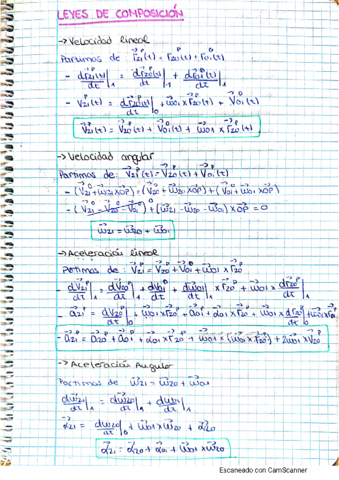 LEYES DE COMPOSICIÓN
→ Velocidad lineal
Partimos de: r⃗₂₁ᴾ(t) = r⃗₂₀ᴾ(t) + r⃗₀₁ᴼ(t)
- dr⃗₂₁ᴾ(t)/dt |₁ = dr⃗₂₀ᴾ(t)/dt |₁ + dr⃗₀₁ᴼ(t)/dt |₁
- V⃗₂₁ᴾ(t) = dr⃗₂₀ᴾ(t)/dt |₀ + ω⃗₀₁ × r⃗₂₀ᴾ(t) + V⃗₀₁ᴼ(t)
V⃗₂₁ᴾ(t) = V⃗₂₀ᴾ(t) + V⃗₀₁ᴼ(t) + ω⃗₀₁ × r⃗₂₀ᴾ(t)
→ Velocidad angular
Partimos de: V⃗₂₁ᴾ(t) = V⃗₂₀ᴾ(t) + V⃗₀₁ᴾ(t)
- (V⃗₂₁ᴼ + ω⃗₂₁ × OP) = (V⃗₂₀ᴼ + ω⃗₂₀ × OP) + (V⃗₀₁ᴼ + ω⃗₀₁ × OP)
- (V⃗₂₁ᴼ - V⃗₂₀ᴼ - V⃗₀₁ᴼ)⁰ + (ω⃗₂₁ - ω⃗₂₀ - ω⃗₀₁) × OP = 0
ω⃗₂₁ = ω⃗₂₀ + ω⃗₀₁
→ Aceleración lineal
Partimos de: V⃗₂₁ᴾ = V⃗₂₀ᴾ + V⃗₀₁ᴼ + ω⃗₀₁ × r⃗₂₀ᴾ
- dV⃗₂₁ᴾ/dt |₁ = dV⃗₂₀ᴾ/dt |₁ + dV⃗₀₁ᴼ/dt |₁ + dω⃗₀₁/dt |₁ × r⃗₂₀ᴾ + ω⃗₀₁ × dr⃗₂₀ᴾ/dt |₁
- a⃗₂₁ᴾ = dV⃗₂₀ᴾ/dt |₀ + ω⃗₀₁ × V⃗₂₀ᴾ + a⃗₀₁ᴼ + α⃗₀₁ × r⃗₂₀ᴾ + ω⃗₀₁ × [dr⃗₂₀ᴾ/dt |₀ + ω⃗₀₁ × r⃗₂₀ᴾ]
- a⃗₂₁ᴾ = a⃗₂₀ᴾ + a⃗₀₁ᴼ + α⃗₀₁ × r⃗₂₀ᴾ + ω⃗₀₁ × [ω⃗₀₁ × r⃗₂₀ᴾ] + 2ω⃗₀₁ × V⃗₂₀ᴾ
→ Aceleración Angular
Partimos de: ω⃗₂₁ = ω⃗₂₀ + ω⃗₀₁
dω⃗₂₁/dt |₁ = dω⃗₂₀/dt |₁ + dω⃗₀₁/dt |₁
α⃗₂₁ = dω⃗₂₀/dt |₀ + ω⃗₀₁ × ω⃗₂₀ + α⃗₀₁
α⃗₂₁ = α⃗₂₀ + α⃗₀₁ + ω⃗₀₁ × ω⃗₂₀
Escaneado con CamScanner